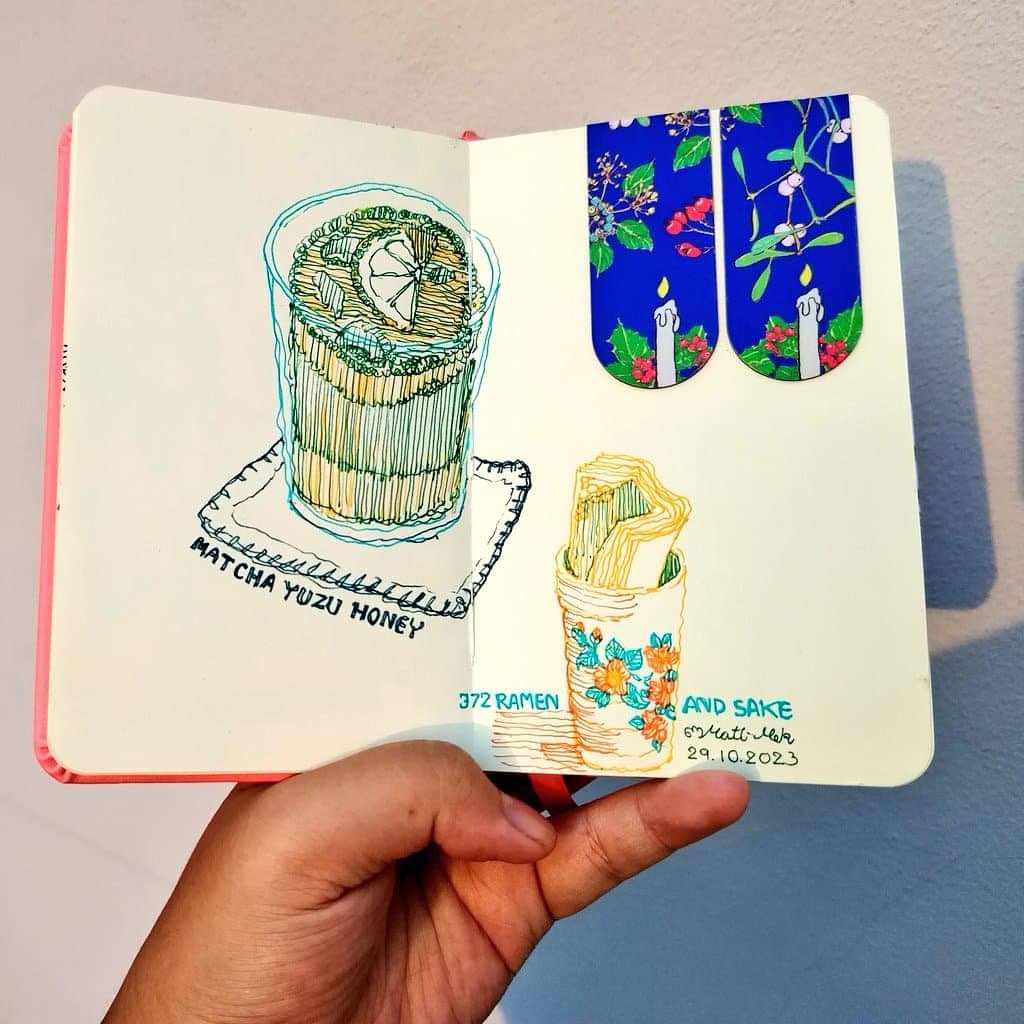 MATCHA YUZU HONEY
372 RAMEN AND SAKE
29.10.2023